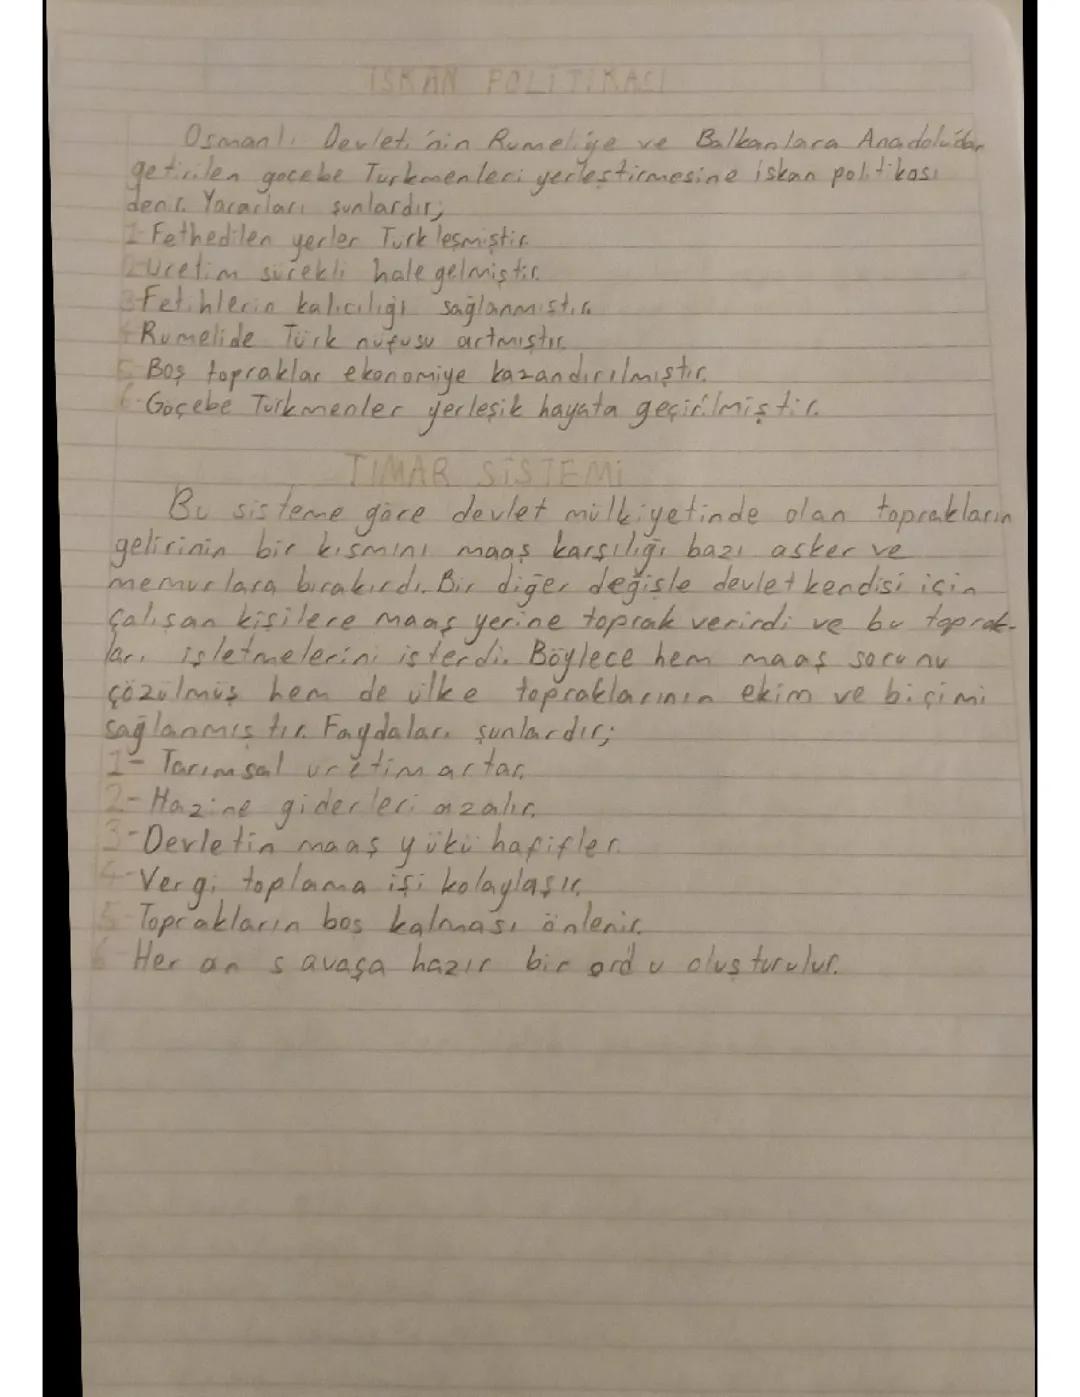 İSKAN POLİTİKASI
Osmanlı Devleti'nin Rumeliye ve Balkanlara Anadolu'dan
getirilen göcebe Turkmenleri yerleştirmesine iskan politikası
denir. Yararları şunlardır;
1-Fethedilen yerler Türkleşmiştir.
2-Uretim sürekli hale gelmiştir.
3-Fetihlerin kalıcılığı sağlanmıştır.
4-Rumelide Türk nüfusu artmıştır.
5-Boş topraklar ekonomiye kazandırılmıştır.
6-Göçebe Türkmenler yerleşik hayata geçirilmiştir.
TIMAR SİSTEMİ
Bu sisteme göre devlet mülkiyetinde olan toprakların
gelirinin bir kısmını maaş karşılığı bazı asker ve
memurlara bırakırdı. Bir diğer değişle devlet kendisi için
çalışan kişilere maaş yerine toprak verirdi ve bu toprak-
ları işletmelerini isterdi. Böylece hem maaş sorunu
çözülmüş hem de ülke topraklarının ekim ve biçimi
sağlanmıştır. Faydaları şunlardır;
1- Tarımsal üretim artar.
2- Hazine giderleri azalır.
3-Devletin maaş yükü hafifler.
4-Vergi toplama işi kolaylaşır.
5-Toprakların boş kalması önlenir.
6 Her an savaşa hazır bir ordu oluşturulur.